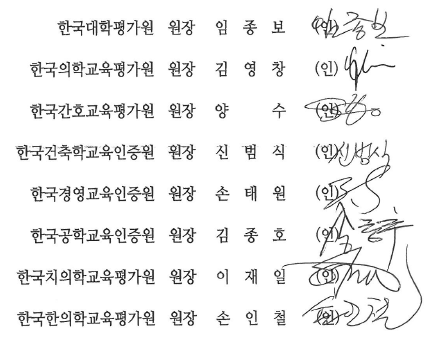 한국대학평가원 원장 임 종 보 (인)
한국의학교육평가원 원장 김 영 창 (인)
한국간호교육평가원 원장 양 수 (인)
한국건축학교육인증원 원장 신 범 식 (인) 신범식
한국경영교육인증원 원장 손 태 원 (인)
한국공학교육인증원 원장 김 종 호 (인)
한국치의학교육평가원 원장 이 재 일 (인)
한국한의학교육평가원 원장 손 인 철 (인)